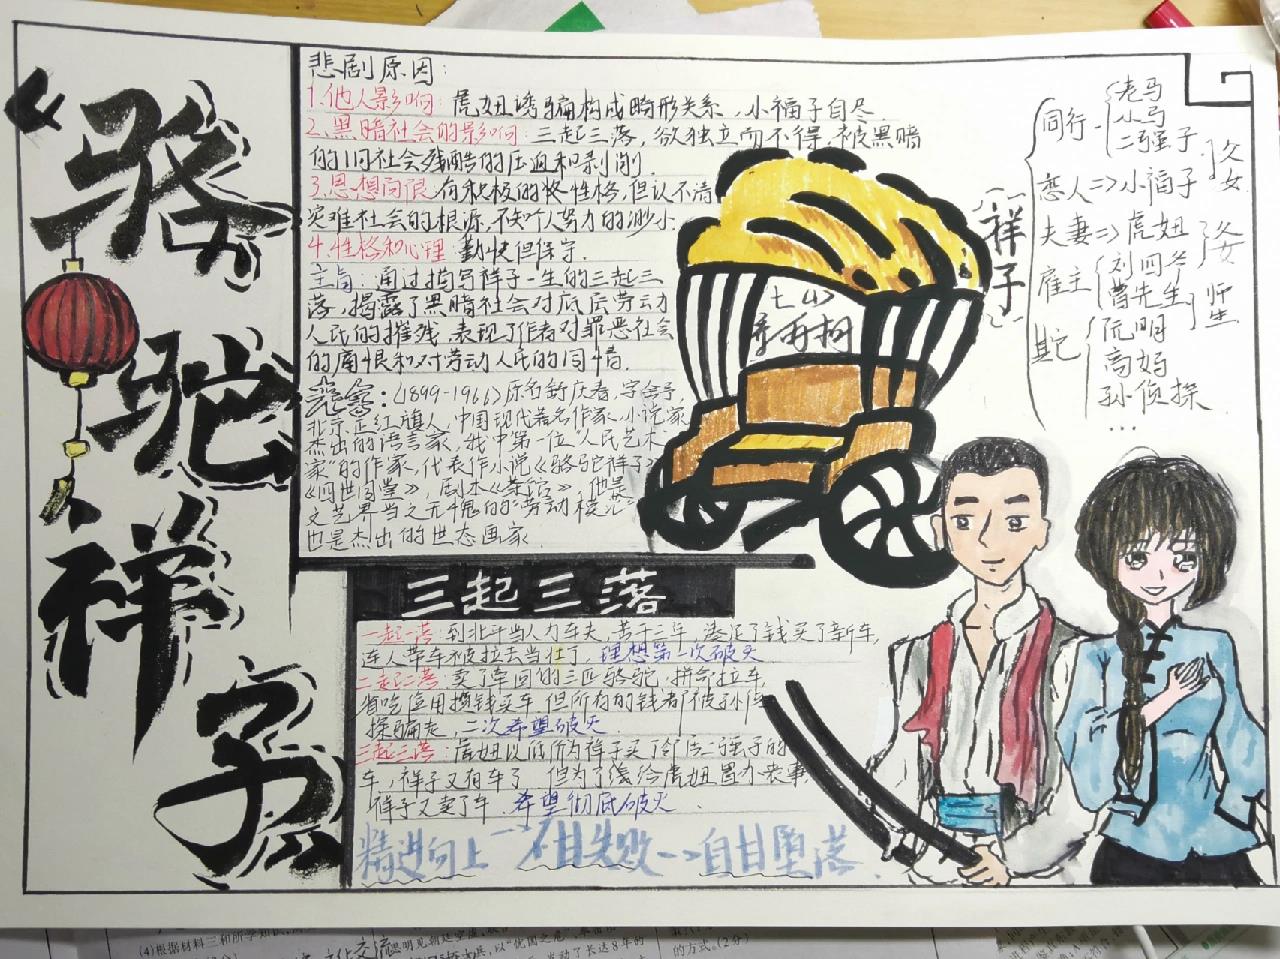 “骆驼祥子”
悲剧原因：
1.他人影响：虎妞诱骗构成畸形关系，小福子自尽.
2.黑暗社会的影响：三起三落，欲独立而不得，被黑暗
的旧社会残酷的压迫和剥削.
3.思想局限 有积极的性格，但认不清
灾难社会的根源，不知个人努力的渺小.
4.性格和心理 勤快但保守.
主旨：通过描写祥子一生的三起三
落，揭露了黑暗社会对底层劳动
人民的摧残，表现了作者对罪恶社会
的痛恨和对劳动人民的同情.
老舍：(1899-1966)原名舒庆春，字舍予，
北京正红旗人，中国现代著名作家，小说家
杰出的语言家，我中第一位“人民艺术
家”的作家，代表作小说《骆驼祥子》
《四世同堂》，剧本《茶馆》，他是
文艺界当之无愧的“劳动模范”
也是杰出的世态画家.
七(4)
三起三落
一起一落：到北平当人力车夫，苦干三年，凑足了钱买了新车，
连人带车被拉去当壮丁，理想第一次破灭
二起二落：卖了牵回的三匹骆驼，拼命拉车，
省吃俭用攒钱买车 但所有的钱都被孙侦
探骗走，二次希望破灭.
三起三落：虎妞以低价为祥子买了邻居二强子的
车，祥子又有车了 但为了钱给虎妞置办丧事，
祥子又卖了车.希望彻底破灭.
精进向上-->不甘失败-->自甘堕落.
“祥子”
同行-
老马
小马
二强子
恋人=>小福子
父女
夫妻=>虎妞
雇主
刘四爷
曹先生
父女
师生
其它
阮明
高妈
孙侦探
...
(4)根据材料三和所学知识，
的方式。(2分)